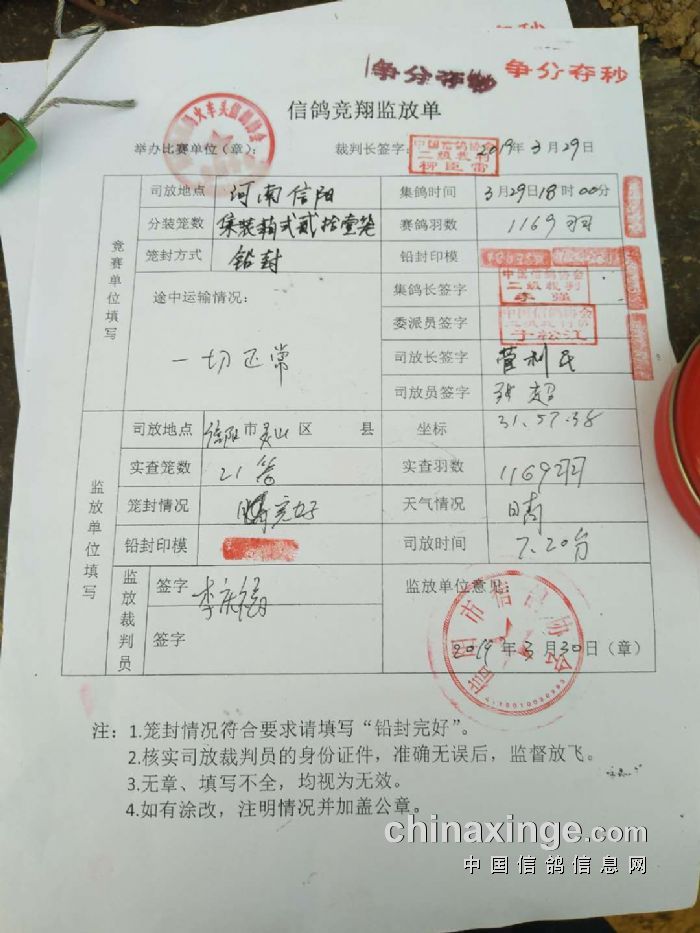 争分夺秒 争分夺秒
信鸽竞翔监放单
举办比赛单位(章): 裁判长签字: 2019年3月29日
中国信鸽协会
二级裁判
柳臣雷
竞赛单位填写
司放地点 河南信阳 集鸽时间 3月29日18时00分
分装笼数 集装箱式贰拾壹笼 赛鸽羽数 1169羽
笼封方式 铅封 铅封印模
途中运输情况: 集鸽长签字 中国信鸽协会
二级裁判
李强
一切正常 委派员签字 中国信鸽协会
于松江
司放长签字 管利民
司放员签字 张超
监放单位填写
司放地点 信阳市灵山区 县 坐标 31.57.38
实查笼数 21笼 实查羽数 1169羽
笼封情况 完好 天气情况 晴
铅封印模 司放时间 7.20分
监放裁判员 签字 李庆 监放单位意见:
签字 2019年3月30日(章)
注: 1.笼封情况符合要求请填写“铅封完好”。
2.核实司放裁判员的身份证件,准确无误后,监督放飞。
3.无章、填写不全,均视为无效。
4.如有涂改,注明情况并加盖公章。
chinaxinge.com
中国信鸽信息网